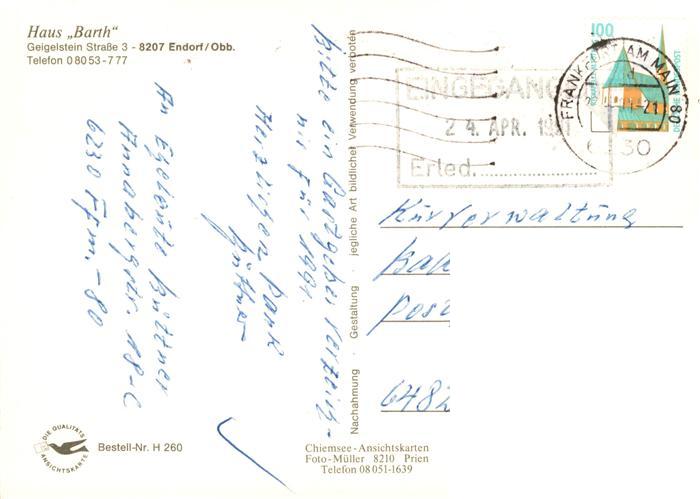 Haus „Barth"
Geigelstein Straße 3 - 8207 Endorf/Obb.
Telefon 08053-777
Bitte ein Gastgeberverzeich-
nis für 1991.
Herzlichen Dank
Büttner
An Egelente Büttner
Annabergstr. 18-C
6230 Ffm.-80
Bestell-Nr. H 260
DIE QUALITÄTS
ANSICHTSKARTE
Nachahmung · Gestaltung · jegliche Art bildlicher Verwendung verboten
Chiemsee-Ansichtskarten
Foto-Müller 8210 Prien
Telefon 08051-1639
EINGEGANG
24. APR. 1991
Erled.
FRANKFURT AM MAIN 80
-21
6230
100
DEUTSCHE BUNDESPOST
Kurverwaltung
Bad
Post
6482